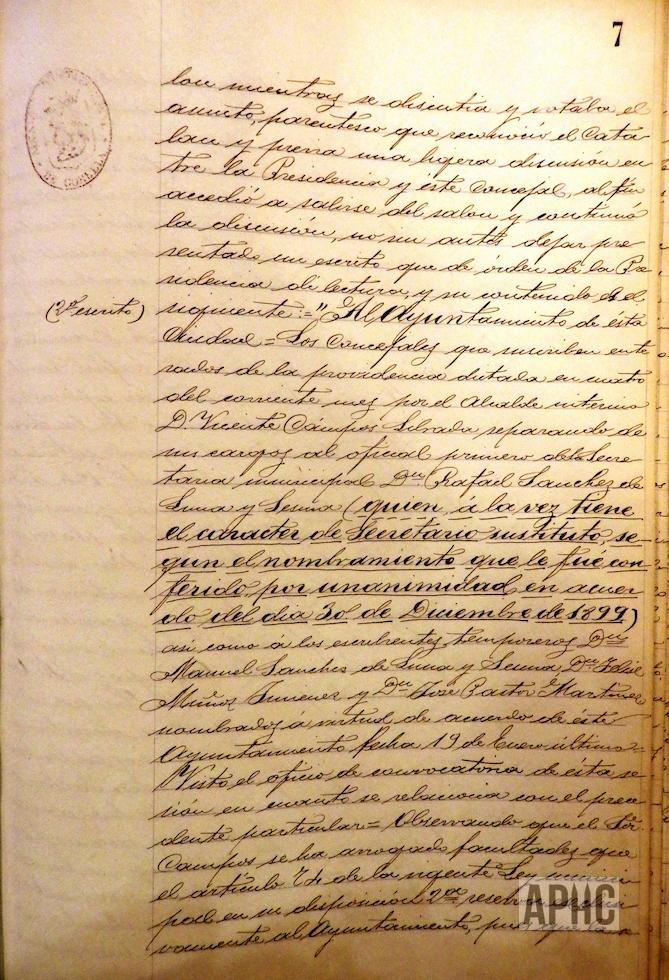 7
lon mientras se discutia y votaba el
asunto, parentesco que reconoció el Cata
lan y previa una ligera discusion en
tre la Presidencia y éste Concejal, al fin
accedió a salirse del salon y continuó
la discusión, no sin antes dejar pre
sentado un escrito que de órden de la Pre-
sidencia di lectura y su contenido es el
(2º escrito)
siguiente:="Al Ayuntamiento de ésta
Ciudad = Los Concejales que suscriben ente
rados de la providencia dictada en cuatro
del corriente mes por el Alcalde interino
D. Vicente Cámpos Silvada separando de
sus cargos al oficial primero de la Secre
taria municipal Dn Rafael Sanchez de
Luna y Lesma (quien, á la vez tiene
el caracter de Secretario sustituto, se-
gun el nombramiento que le fué con-
ferido, por unanimidad en acuer-
do del dia 30 de Diciembre de 1899)
asi como á los escribientes temporeros Dn
Manuel Sanchez de Luna y Lesma, Dn Felix
Muñoz Jimenez y Dn José Pastor Martinez
nombrados á virtud de acuerdo de éste
Ayuntamiento fecha 19 de Enero último=
Visto el oficio de convocatoria de ésta se
sión en cuanto se relaciona con el prece
dente particular= Observando que el Sr.
Campos se ha arrogado facultades que
el artículo 74 de la vigente Ley munici
pal en su disposición 2ª reserva exclusi
vamente al Ayuntamiento, pues que la
APHC